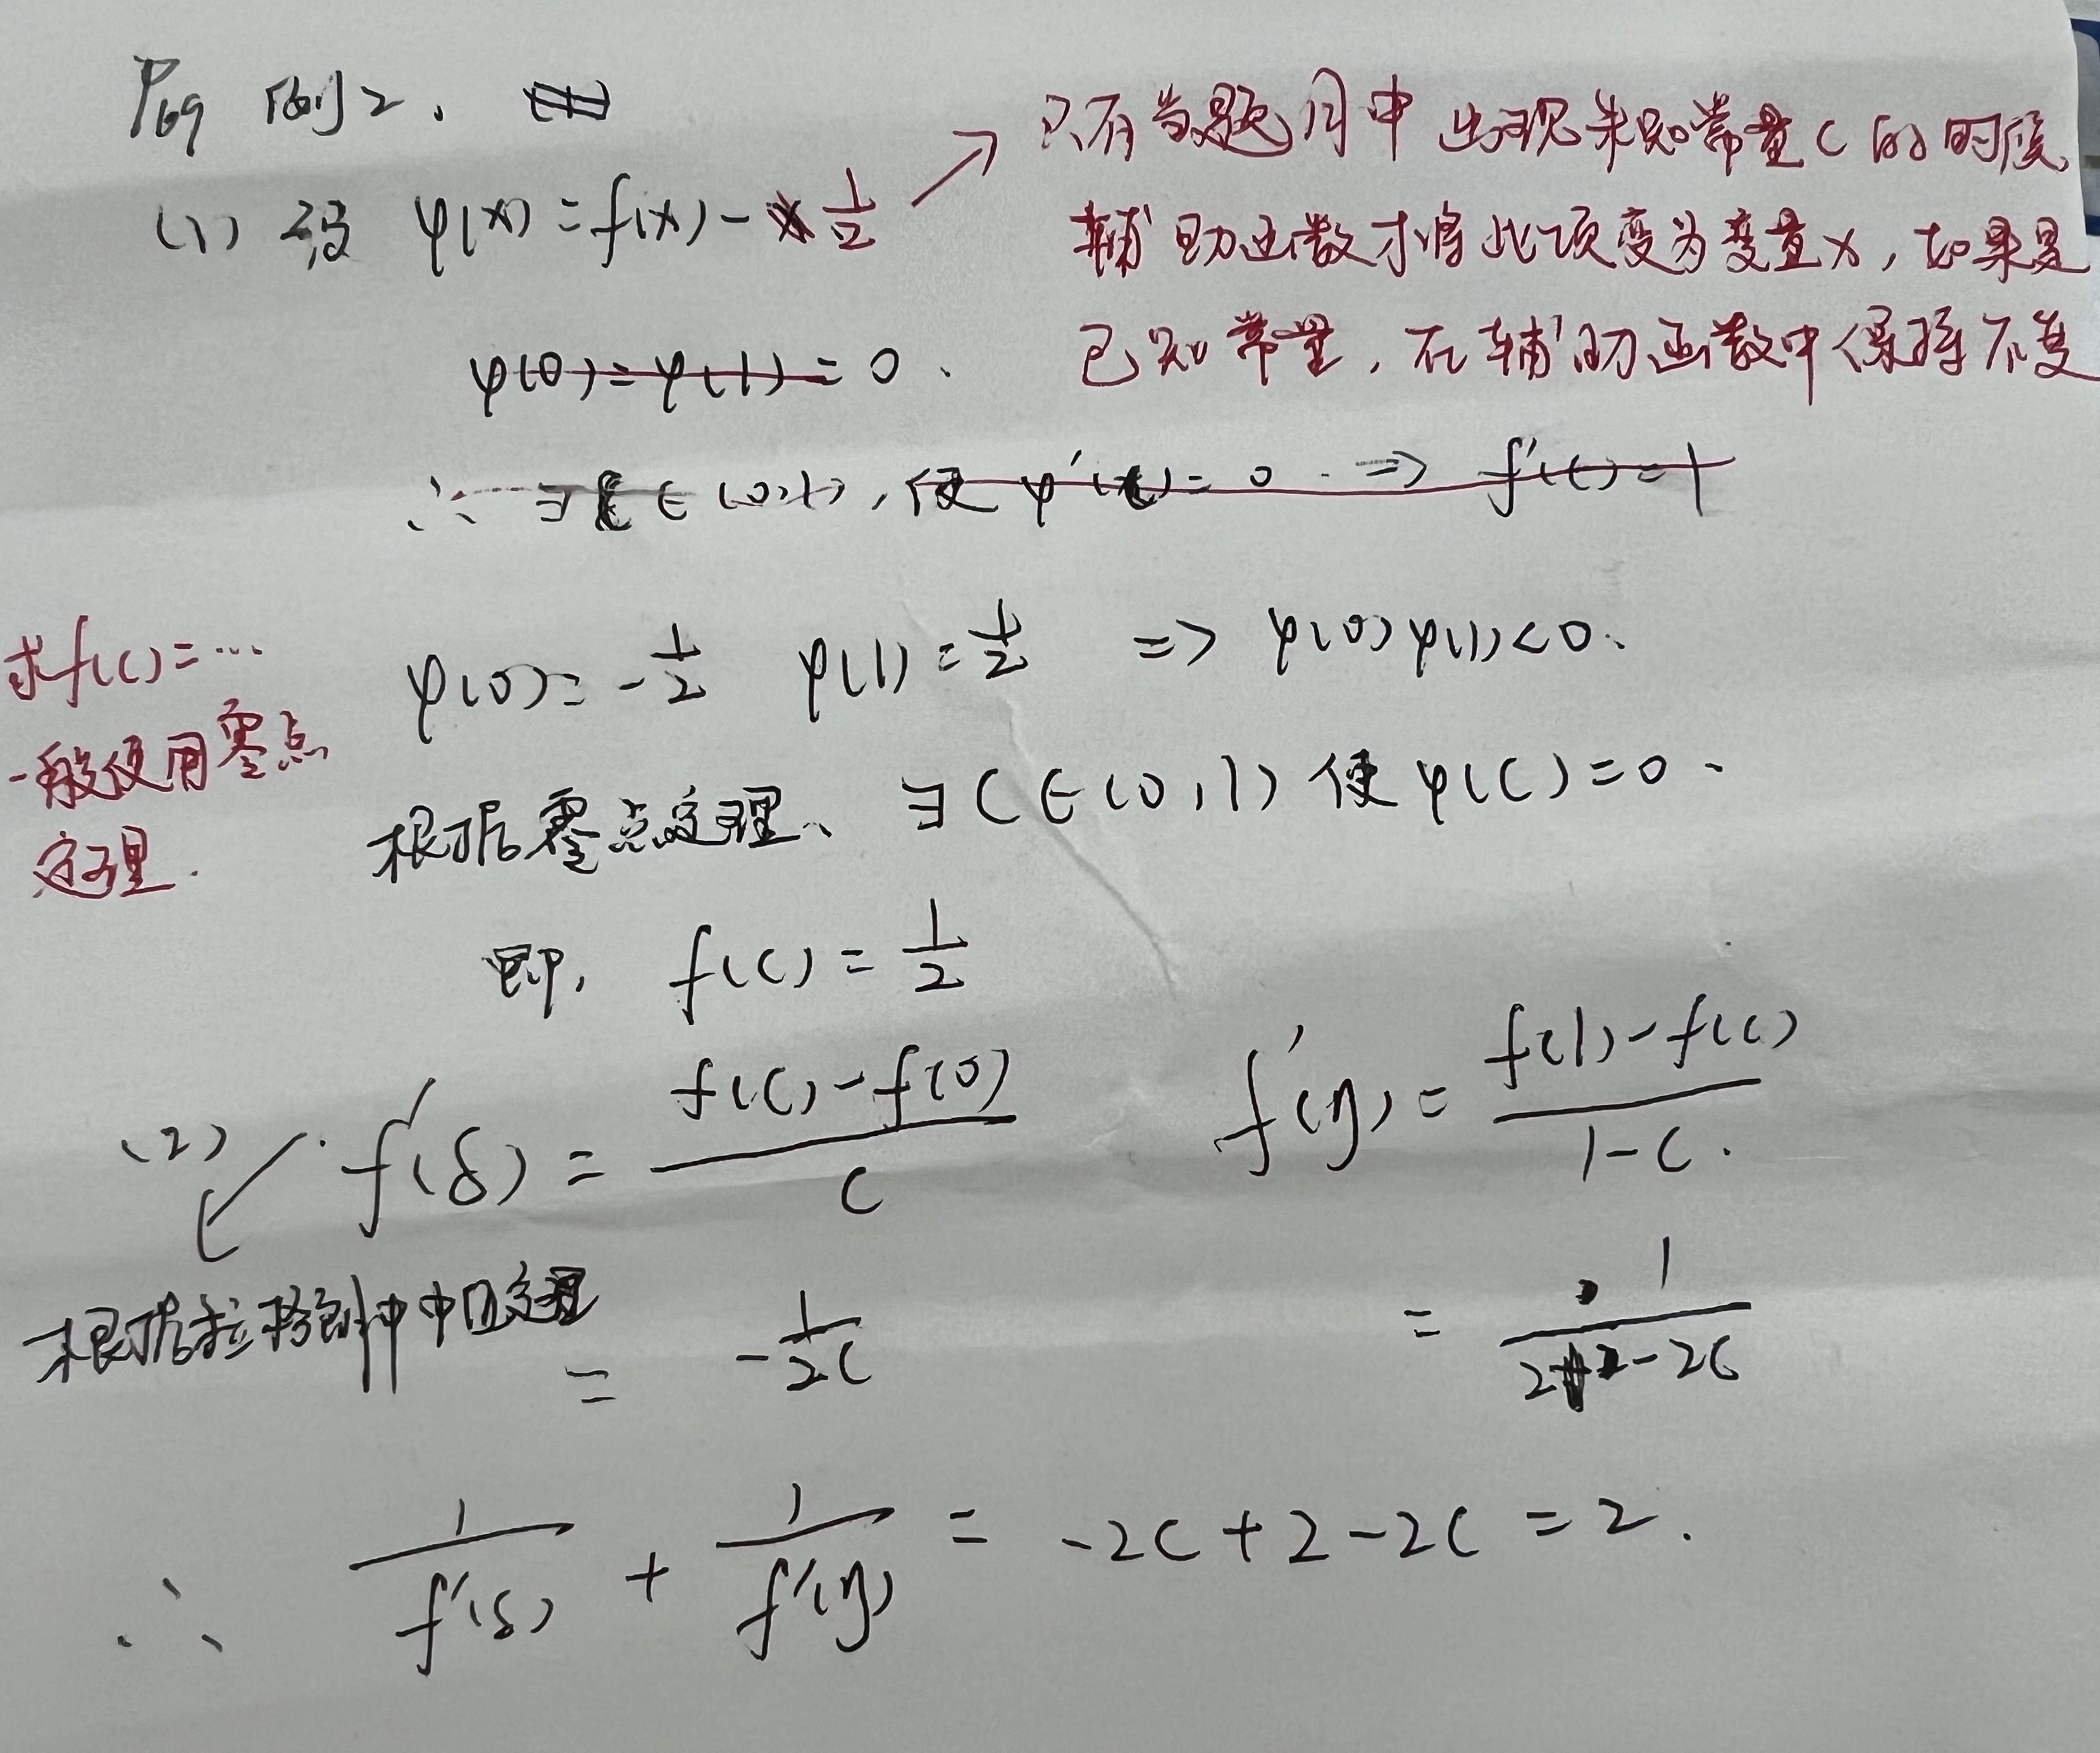 P69 例2.
(1) 设 φ(x) = f(x) - 1/2
只有当题目中出现未知常量C的时候,
辅助函数才将此项变为变量x, 如果是
已知常量, 在辅助函数中保持不变
φ(0) = φ(1) = 0.
∴ ∃ξ ∈ (0,1), 使 φ'(ξ) = 0 ⇒ f'(ξ) = 1
求f(c) = …
一般使用零点
定理.
φ(0) = -1/2 φ(1) = 1/2 => φ(0)φ(1) < 0.
根据零点定理、∃ C ∈ (0,1) 使 φ(C) = 0.
即, f(c) = 1/2
(2) f'(ξ) = (f(c) - f(0)) / C f'(η) = (f(1) - f(c)) / (1 - C).
根据拉格朗日中值定理
= - 1/(2C) = 1/(2 - 2C)
∴ 1/f'(ξ) + 1/f'(η) = -2C + 2 - 2C = 2.